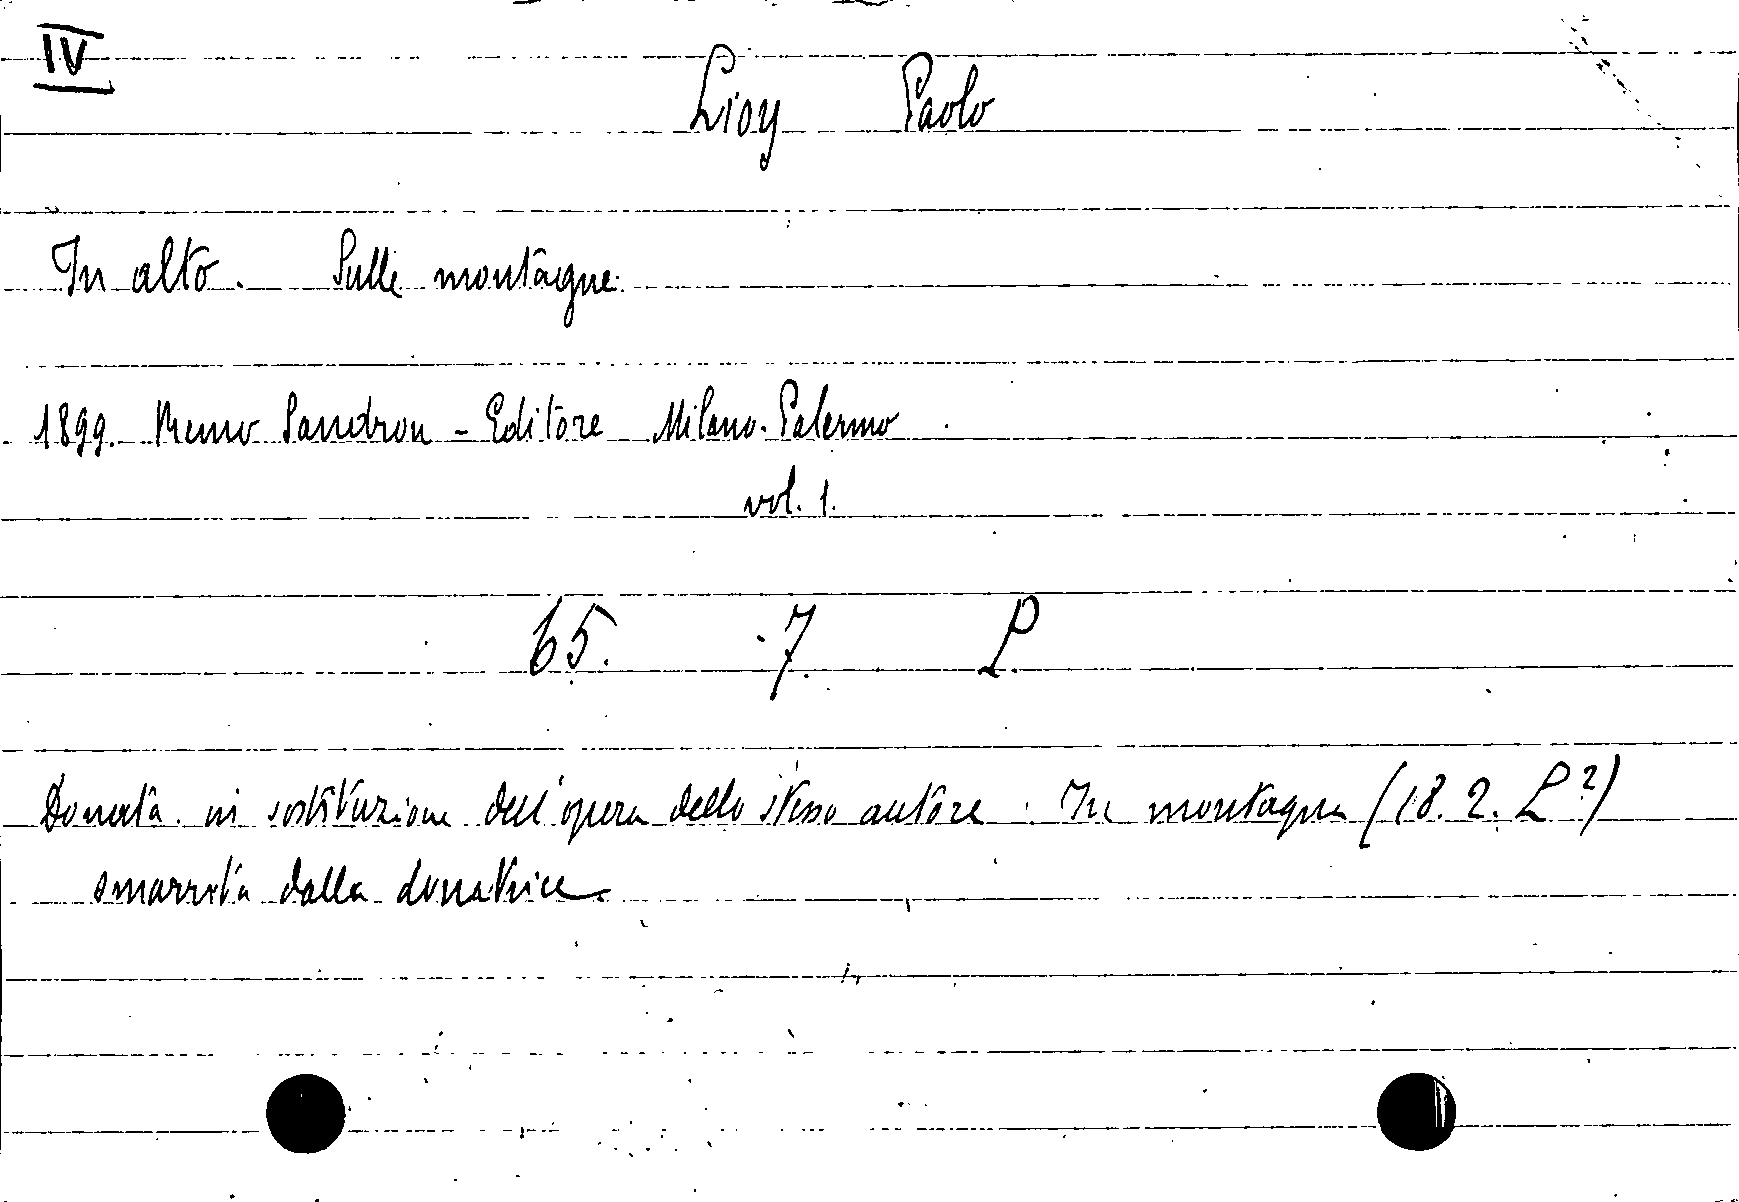 IV
Lioy Paolo
In alto. Sulle montagne.
1899. Remo Sandron - Editore Milano. Palermo
vol. 1.
65. 7. L
Donata in sostituzione dell'opera dello stesso autore: In montagna (18. 2. L²)
smarrita dalla donatrice.